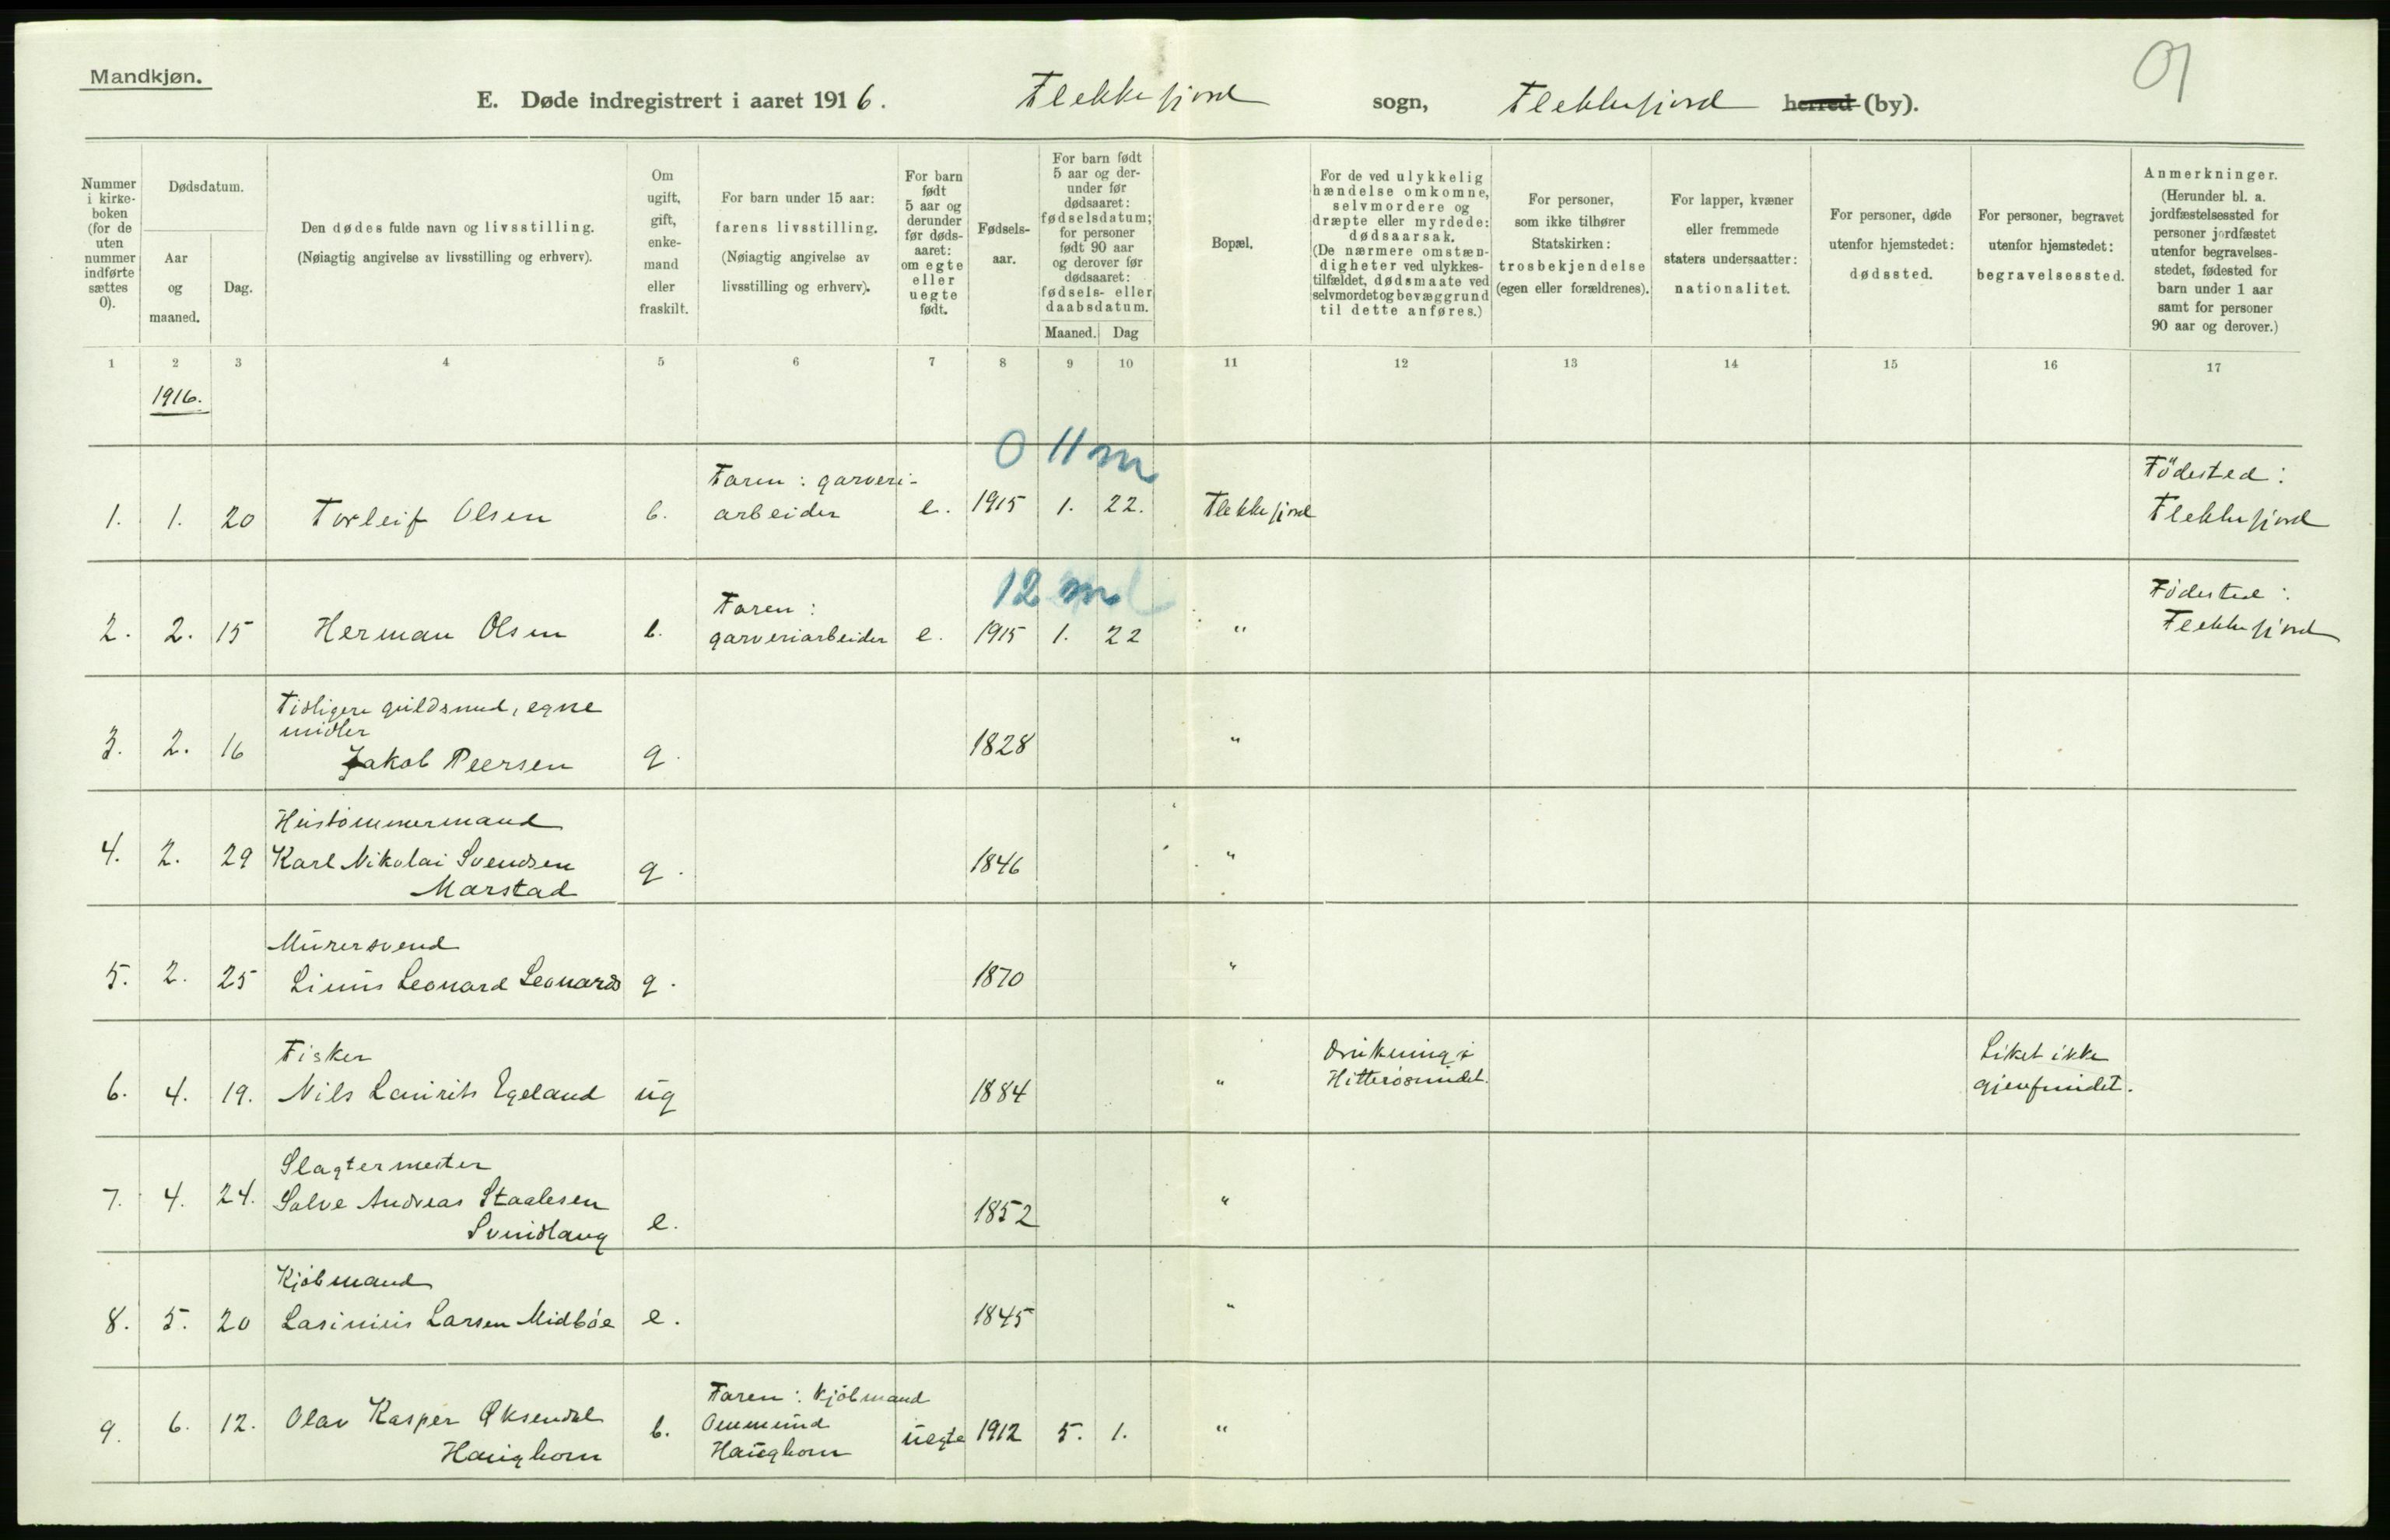 Mandkjøn.
01
E. Døde indregistrert i aaret 1916. Flekkefjord sogn, Flekkefjord herred (by).
Nummer i kirke-boken (for de uten nummer indførte sættes 0).
Dødsdatum.
Aar og maaned.
Dag.
Den dødes fulde navn og livsstilling.
(Nøiagtig angivelse av livsstilling og erhverv).
Om ugift, gift, enke-mand eller fraskilt.
For barn under 15 aar:
farens livsstilling.
(Nøiagtig angivelse av livsstilling og erhverv).
For barn født 5 aar og derunder før døds-aaret: om egte eller uegte født.
Fødsels-aar.
For barn født 5 aar og der-under før dødsaaret: fødselsdatum; for personer født 90 aar og derover før dødsaaret: fødsels- eller daabsdatum.
Maaned. Dag
Bopæl.
For de ved ulykkelig hændelse omkomne, selvmordere og dræpte eller myrdede: dødsaarsak. (De nærmere omstæn-digheter ved ulykkes-tilfældet, dødsmaate ved selvmordet og bevæggrund til dette anføres.)
For personer, som ikke tilhører Statskirken: trosbekjendelse (egen eller forældrenes).
For lapper, kvæner eller fremmede staters undersaatter: nationalitet.
For personer, døde utenfor hjemstedet: dødssted.
For personer, begravet utenfor hjemstedet: begravelsessted.
Anmerkninger.
(Herunder bl. a. jordfæstelsessted for personer jordfæstet utenfor begravelses-stedet, fødested for barn under 1 aar samt for personer 90 aar og derover.)
1 2 3 4 5 6 7 8 9 10 11 12 13 14 15 16 17
1916.
0 11 m
Faren: garveri-
Födested:
1. 1. 20 Torleif Olsen b. arbeider e. 1915 1. 22. Flekkefjord Flekkefjord
12 m
Faren:
Födested:
2. 2. 15 Herman Olsen b. garveriarbeider e. 1915 1. 22 " Flekkefjord
Tidligere guldsmed, egne
midler
3. 2. 16 Jakob Peersen g. 1828 "
Hustömmermand
4. 2. 29 Karl Nikolai Svendsen g. 1846 "
Marstad
Murersvend
5. 2. 25 Linus Leonard Leonards g. 1870 "
Fisker
Drukning i
Liket ikke
6. 4. 19. Nils Laurits Egeland ug 1884 " Hitterösundet. gjenfundet.
Slagtermester
7. 4. 24. Salve Andreas Staalesen 1852 "
Svindlang e.
Kjöbmand
8. 5. 20 Lasinius Larsen Midböe e. 1845 "
Faren: kjöbmand
9. 6. 12. Olav Kasper Øksendal b. Ommund uegte 1912 5. 1. "
Haughom Haughom